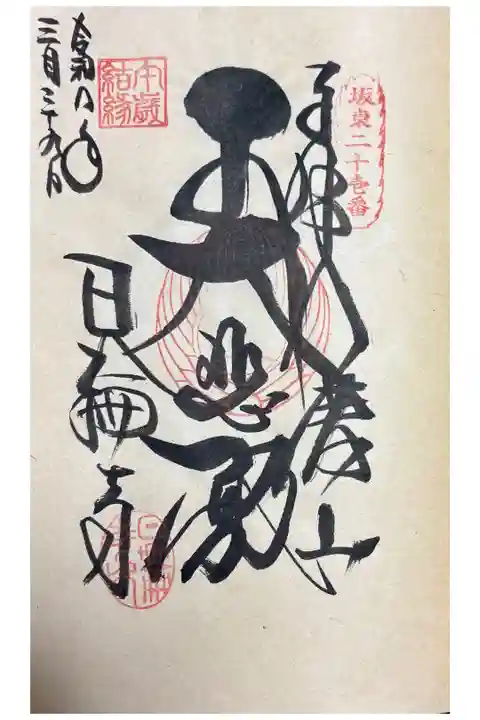 坂東二十壱番
奉拝 八溝山
大悲殿
日輪寺
午歳
結縁
令和八年
三月二十九日